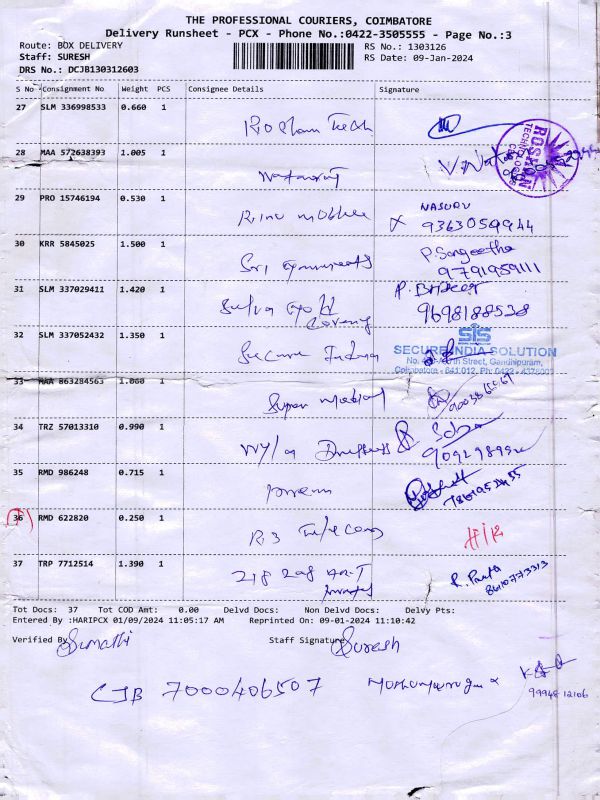 THE PROFESSIONAL COURIERS, COIMBATORE
Delivery Runsheet - PCX - Phone No.:0422-3505555 - Page No.:3
Route: BOX DELIVERY RS No.: 1303126
Staff: SURESH RS Date: 09-Jan-2024
DRS No.: DCJB130312603
S No Consignment No Weight PCS Consignee Details Signature
27 SLM 336998533 0.660 1
ROSHAN TECHNOLOGIES
28 MAA 572638393 1.005 1
29 PRO 15746194 0.530 1
NASURU
9363059944
30 KRR 5845025 1.500 1
P. Sangeetha
9791959111
31 SLM 337029411 1.420 1
Selva Gold
Covering
9698188538
32 SLM 337052432 1.350 1
Secure India
SIS
SECURE INDIA SOLUTION
Street, Gandhipuram,
Coimbatore - 641 012. Ph: 0422 - 4378003
33 MAA 863284563 1.060 1
Super
34 TRZ 57013310 0.990 1
35 RMD 986248 0.715 1
36 RMD 622820 0.250 1
R3 Telecom
37 TRP 7712514 1.390 1
218 208 ART
8610773313
Tot Docs: 37 Tot COD Amt: 0.00 Delvd Docs: Non Delvd Docs: Delvy Pts:
Entered By :HARIPCX 01/09/2024 11:05:17 AM Reprinted On: 09-01-2024 11:10:42
Verified By Sumathi Staff Signature Suresh
CJB 7000406507
99948 12106